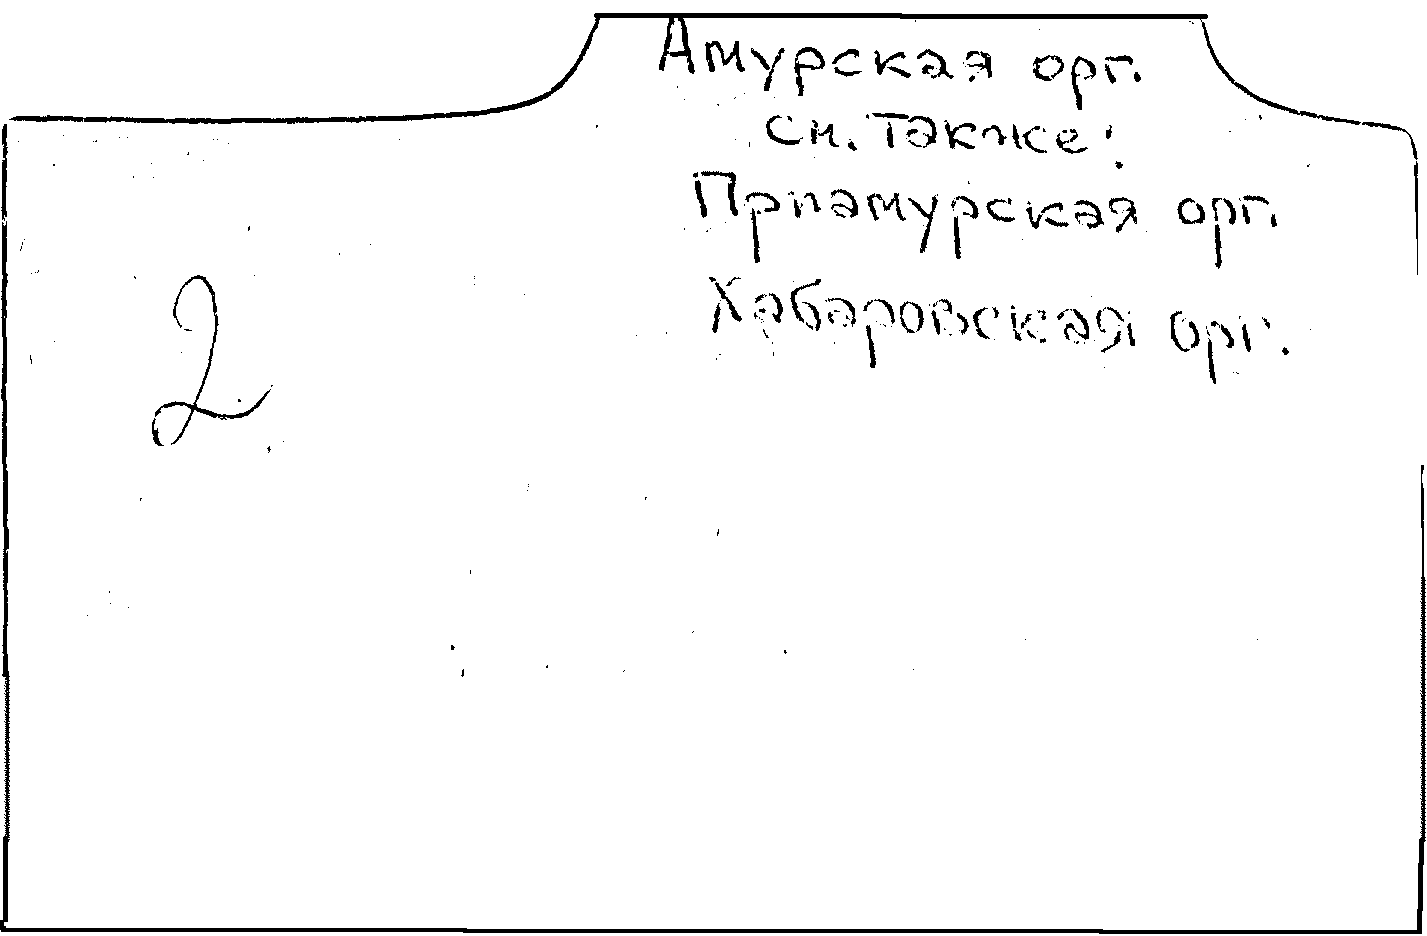 Амурская орг.
см. также:
Приамурская орг.
Хабаровская орг.
2